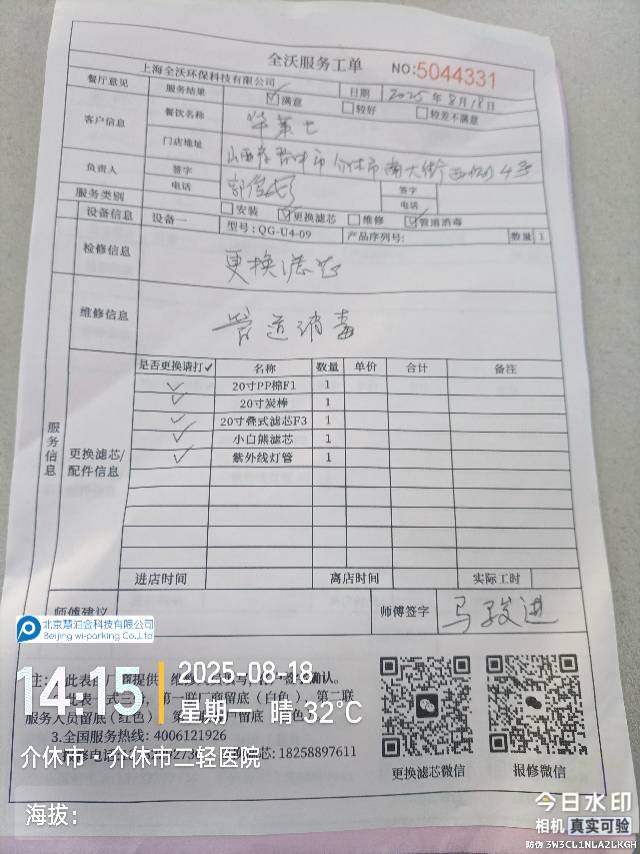 全沃服务工单
NO:5044331
上海全沃环保科技有限公司
日期 2025年8月18日
餐厅意见 服务结果 ☑满意 □较好 □较差不满意
客户信息 餐饮名称 华莱士
门店地址 山西省晋中市介休市南大街
负责人 签字 签字
电话 电话
服务类别 □安装 ☑更换滤芯 □维修 ☑管道消毒
设备信息 设备一 型号:QG-U4-09 产品序列号: 数量 1
检修信息 更换滤芯
维修信息 管道消毒
服务信息
更换滤芯/配件信息
是否更换请打✓ 名称 数量 单价 合计 备注
✓ 20寸PP棉F1 1
✓ 20寸炭棒 1
✓ 20寸叠式滤芯F3 1
✓ 小白熊滤芯 1
✓ 紫外线灯管 1
进店时间 离店时间 实际工时
师傅建议 师傅签字 马骏进
北京慧泊金科技有限公司
Beijing wi-parking Co.,Ltd
14:15
2025-08-18
星期一 晴 32℃
介休市·介休市二轻医院
海拔:
服务人员留底（红色）
3.全国服务热线: 4006121926
18258897611
更换滤芯微信
报修微信
今日水印
相机 真实可验
防伪 3W3CL1NLA2LKGH